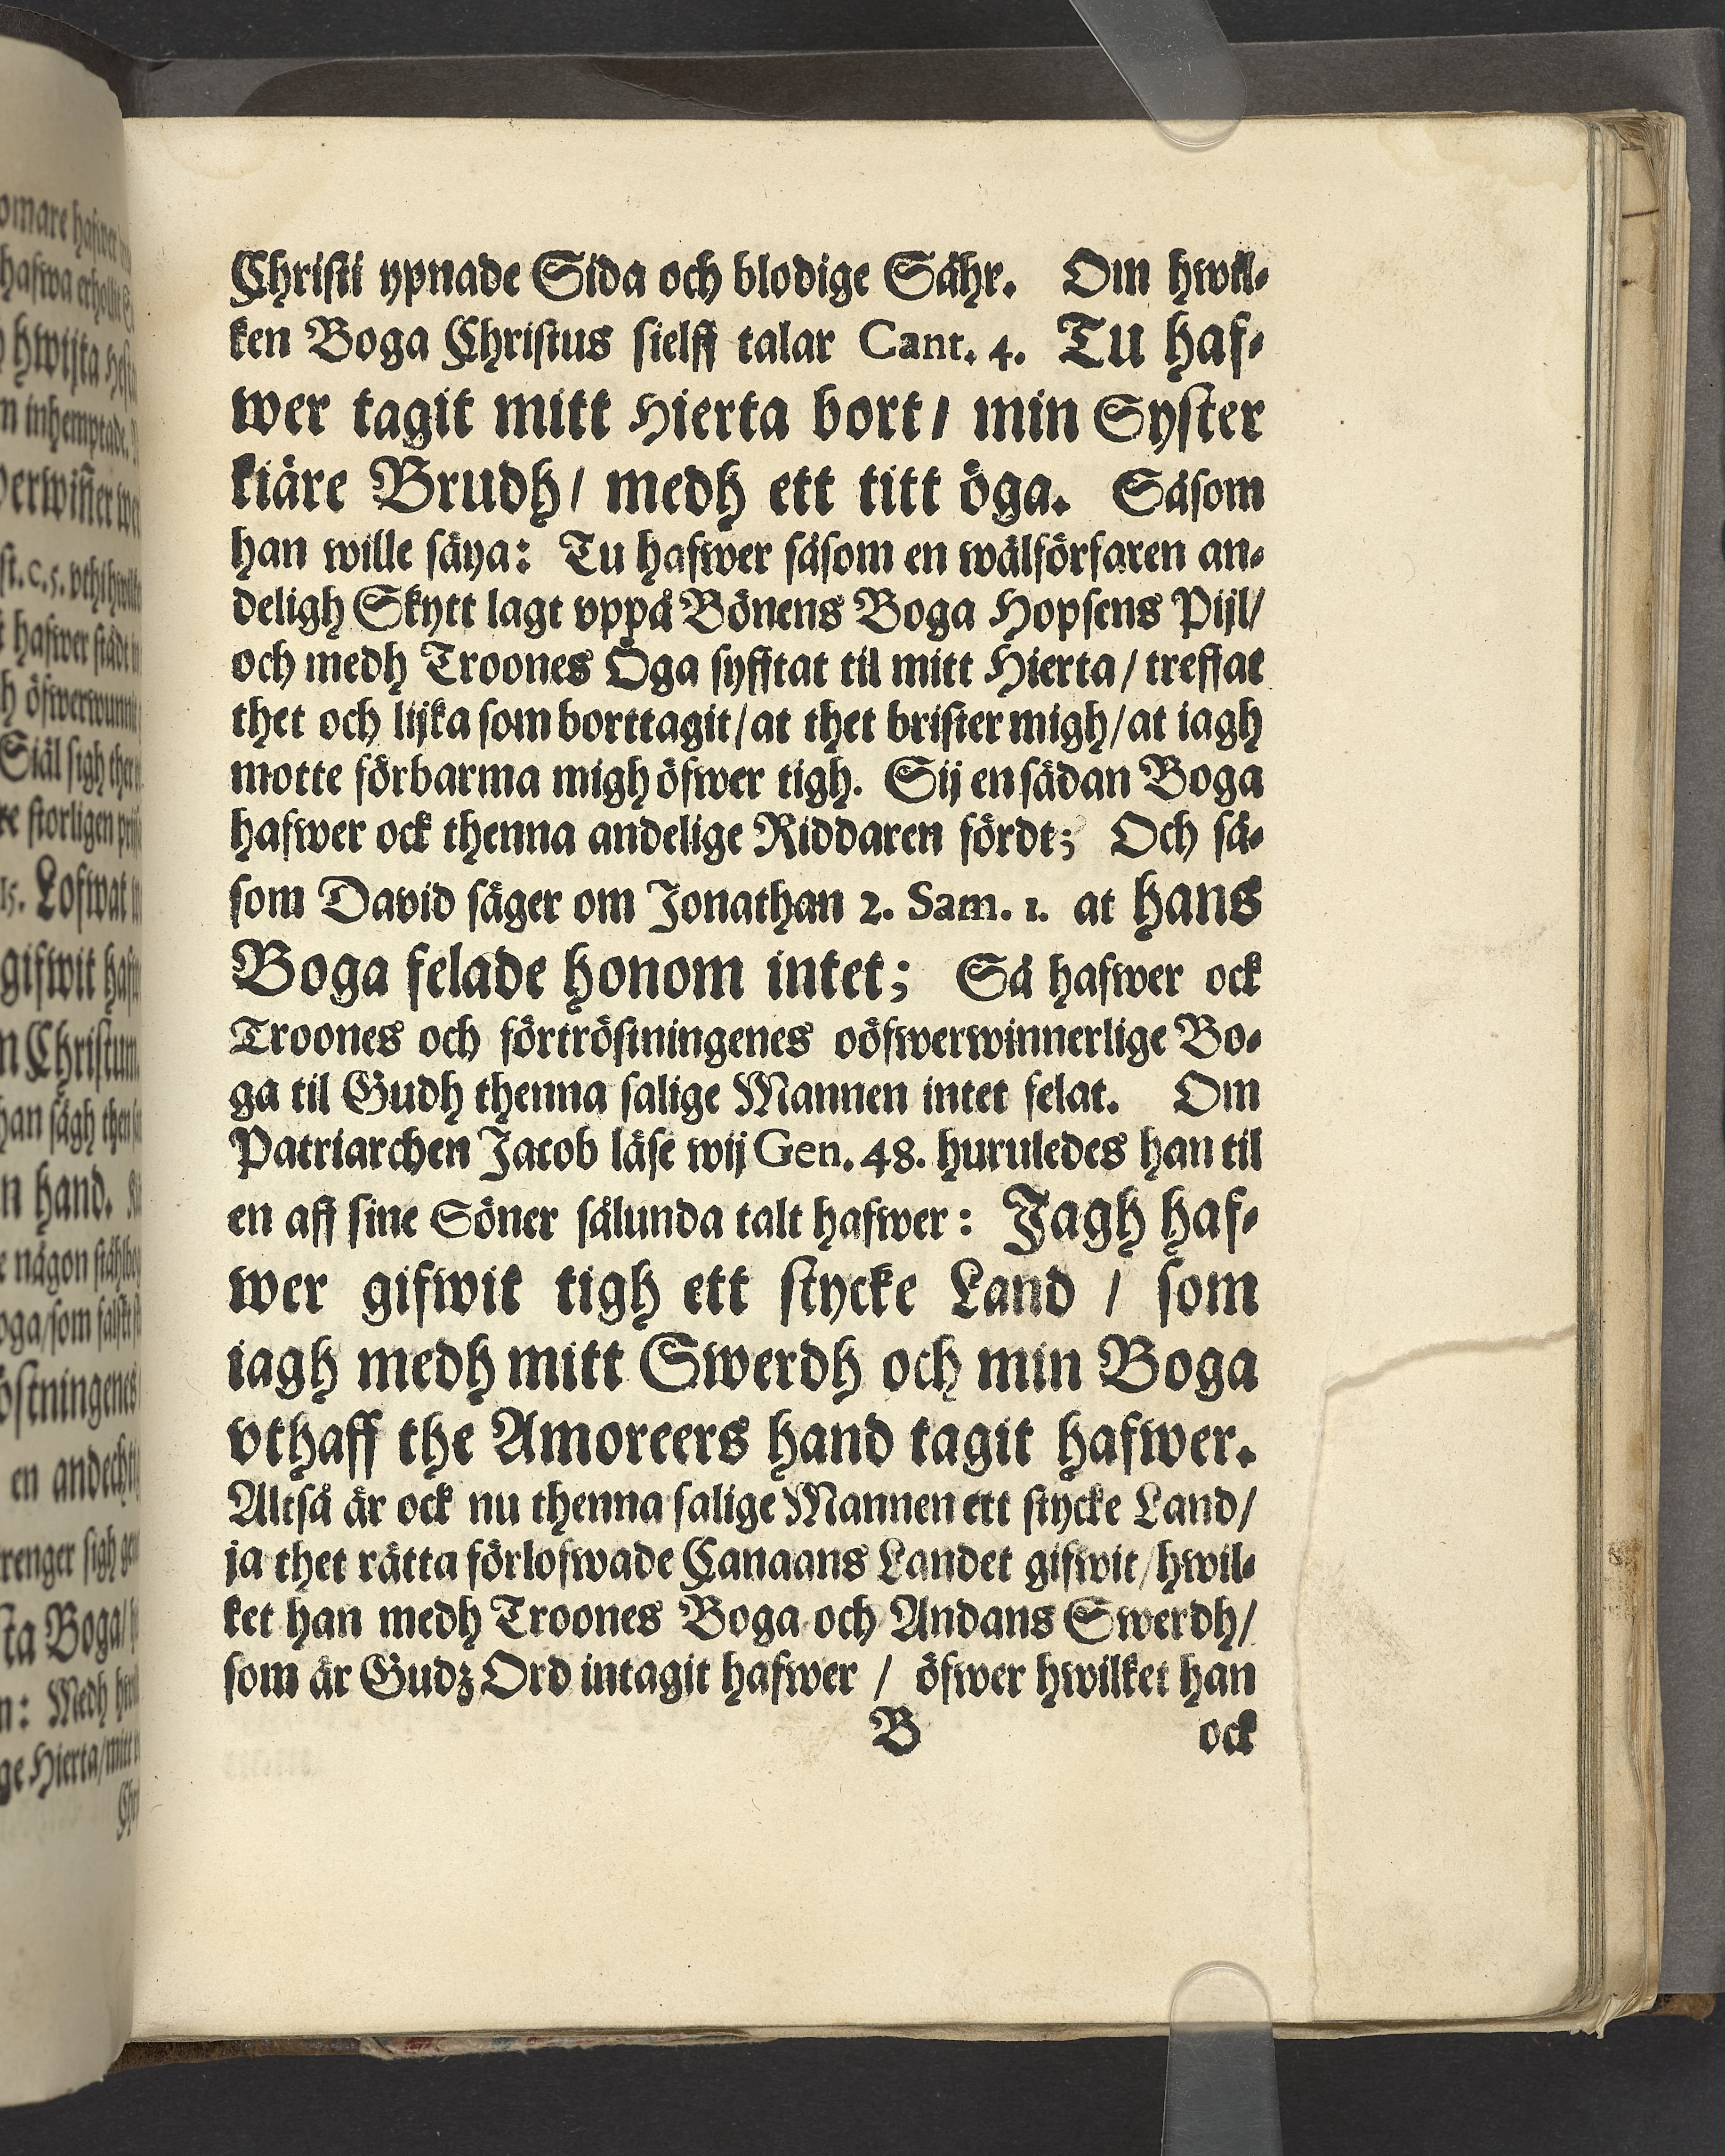 Christi ypnade Sida och blodige Såhr. Om hwil-
ken Boga Christus sielff talar Cant. 4. Tu haf-
wer tagit mitt Hierta bort/ min Syster
kiäre Brudh/ medh ett titt öga. Såsom
han wille säya: Tu hafwer såsom en wälförfaren an-
deligh Skytt lagt vppå Bönens Boga Hopsens Pijl/
och medh Troones Öga syfftat til mitt Hierta/ treffat
thet och lijka som borttagit/ at thet brister migh/ at iagh
motte förbarma migh öfwer tigh. Sij en sådan Boga
hafwer ock thenna andelige Riddaren fördt; Och så-
som David säger om Jonathan 2. Sam. 1. at hans
Boga felade honom intet; Så hafwer ock
Troones och förtröstningenes oöfwerwinnerlige Bo-
ga til Gudh thenna salige Mannen intet felat. Om
Patriarchen Jacob läse wij Gen. 48. huruledes han til
en aff sine Söner sålunda talt hafwer: Jagh haf-
wer gifwit tigh ett stycke Land / som
iagh medh mitt Swerdh och min Boga
vthaff the Amoreers hand tagit hafwer.
Altså är ock nu thenna salige Mannen ett stycke Land/
ja thet rätta förlofwade Canaans Landet gifwit/ hwil-
ket han medh Troones Boga och Andans Swerdh/
som är Gudz Ord intagit hafwer / öfwer hwilket han
B ock